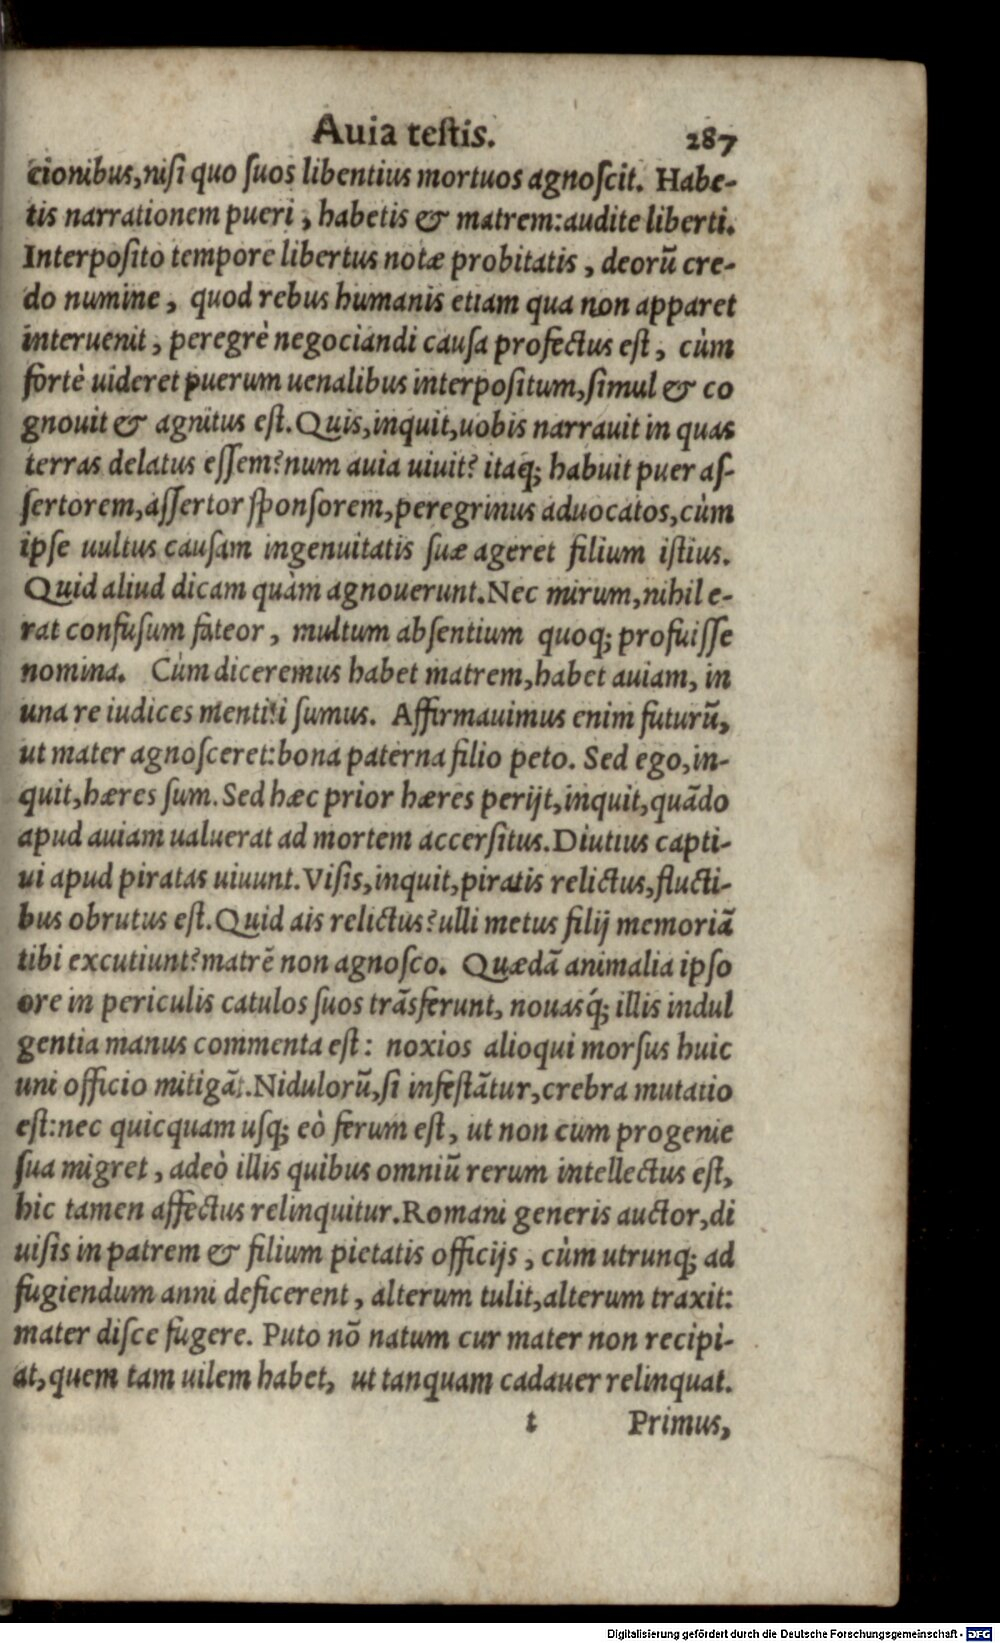 Auia testis. 287
cionibus, nisi quo suos libentius mortuos agnoscit. Habe-
tis narrationem pueri, habetis & matrem: audite liberti.
Interposito tempore libertus notæ probitatis, deorũ cre-
do numine, quod rebus humanis etiam qua non apparet
interuenit, peregrè negociandi causa profectus est, cùm
fortè uideret puerum uenalibus interpositum, simul & co
gnouit & agnitus est. Quis, inquit, uobis narrauit in quas
terras delatus essem? num auia uiuit? itaq; habuit puer as-
sertorem, assertor sponsorem, peregrinus aduocatos, cùm
ipse uultus causam ingenuitatis suæ ageret filium istius.
Quid aliud dicam quàm agnouerunt. Nec mirum, nihil e-
rat confusum fateor, multum absentium quoq; profuisse
nomina. Cùm diceremus habet matrem, habet auiam, in
una re iudices mentiti sumus. Affirmauimus enim futurũ,
ut mater agnosceret: bona paterna filio peto. Sed ego, in-
quit, hæres sum. Sed hæc prior hæres perijt, inquit, quãdo
apud auiam ualuerat ad mortem accersitus. Diutius capti-
ui apud piratas uiuunt. Visis, inquit, piratis relictus, flucti-
bus obrutus est. Quid ais relictus? ulli metus filij memoriã
tibi excutiunt? matrẽ non agnosco. Quædã animalia ipso
ore in periculis catulos suos trãsferunt, nouasq́; illis indul
gentia manus commenta est: noxios alioqui morsus huic
uni officio mitigãt. Nidulorũ, si infestãtur, crebra mutatio
est: nec quicquam usq; eò ferum est, ut non cum progenie
sua migret, adeò illis quibus omniũ rerum intellectus est,
hic tamen affectus relinquitur. Romani generis auctor, di
uisis in patrem & filium pietatis officijs, cùm utrunq; ad
fugiendum anni deficerent, alterum tulit, alterum traxit:
mater disce fugere. Puto nõ natum cur mater non recipi-
at, quem tam uilem habet, ut tanquam cadauer relinquat.
t Primus,
Digitalisierung gefördert durch die Deutsche Forschungsgemeinschaft - DFG